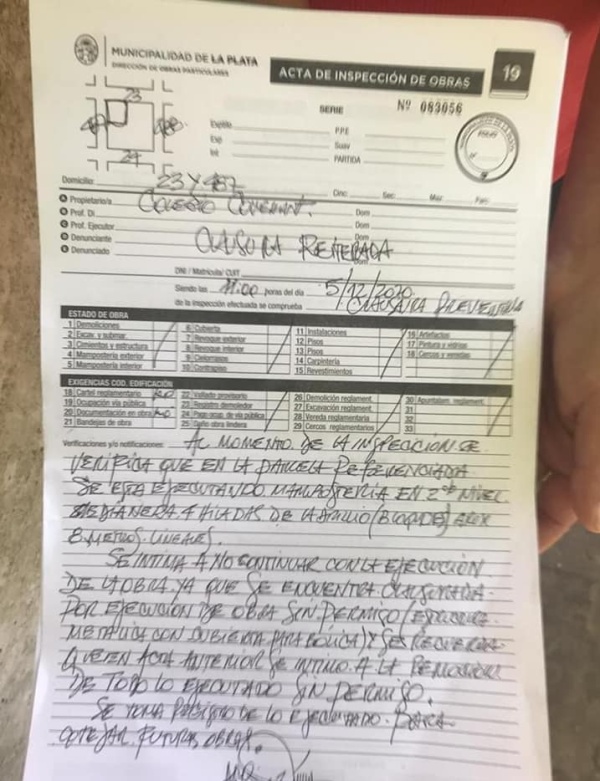 MUNICIPALIDAD DE LA PLATA
DIRECCIÓN DE OBRAS PARTICULARES
ACTA DE INSPECCIÓN DE OBRAS
19
SERIE
Nº 083056
23
24
Expdte
Esp
Int
P.P.E
Suav
PARTIDA
Domicilio: 23 Y 487 Circ: Sec: Maz: Parc:
A Propietario/s COLEGIO Dom
B Prof. Di Dom
C Prof. Ejecutor Dom
D Denunciante CLAUSURA REITERADA Dom
E Denunciado Dom
DNI / Matrícula/ CUIT
Siendo las 11:00 horas del día 5/12/2020
de la inspección efectuada se comprueba CLAUSURA PREVENTIVA
ESTADO DE OBRA
1 Demoliciones
2 Excav. y submur.
3 Cimientos y estructura
4 Mampostería exterior
5 Mampostería interior
6 Cubierta
7 Revoque exterior
8 Revoque interior
9 Cielorrasos
10 Contrapiso
11 Instalaciones
12 Pisos
13 Pisos
14 Carpintería
15 Revestimientos
16 Artefactos
17 Pintura y vidrios
18 Cercos y veredas
EXIGENCIAS COD. EDIFICACIÓN
18 Cartel reglamentario NO
19 Ocupación vía pública
20 Documentación en obra NO
21 Bandejas de obra
22 Vallado provisorio
23 Registro demoledor
24 vía pública
25 obra lindera
26 Demolición reglament.
27 Excavación reglament.
28 Vereda reglamentaria
29 Cercos reglamentarios
30 Apuntalam. reglament.
31
32
33
Verificaciones y/o notificaciones: AL MOMENTO DE LA INSPECCION SE
VERIFICA QUE EN LA PARCELA REFERENCIADA
SE ESTA EJECUTANDO MAMPOSTERIA EN 2do NIVEL
MEDIANERA 4 HILADAS DE LADRILLO (BLOQUES) APROX
8 METROS LINEALES.
SE INTIMA A NO CONTINUAR CON LA EJECUCION
DE LA OBRA YA QUE SE ENCUENTRA CLAUSURADA
POR EJECUCION DE OBRA SIN PERMISO (ESTRUCTURA
METALICA CON CUBIERTA PARABOLICA) Y SE RECUERDA
QUE EN ACTA ANTERIOR SE INTIMO A LA REMOCION
DE TODO LO EJECUTADO SIN PERMISO.
SE TOMA REGISTRO DE LO EJECUTADO PARA
COTEJAR FUTURAS OBRAS.